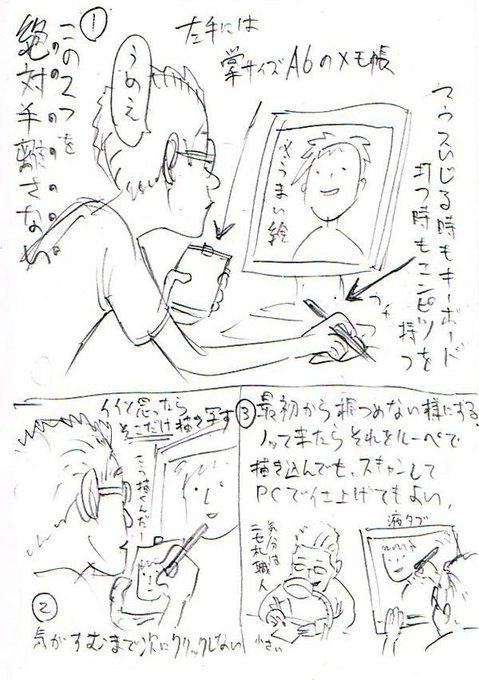 ①
このスつを
絶対手離さない。
うめえ
左手には
掌サイズA6のメモ帳
マウスいじる時もキーボード
打つ時もエンピツを
持つ
さうまい絵
カチ
イイと思ったら
そこだけ描き写す
こう描くんだー
②
気がすむまで次にクリックしない
③
最初から根つめない様にする
ノッて来たらそれをルーペで
描き込んでも、スキャンして
PCで仕上げてもよい。
気分は
ニセ札職人
小さい
液タブ